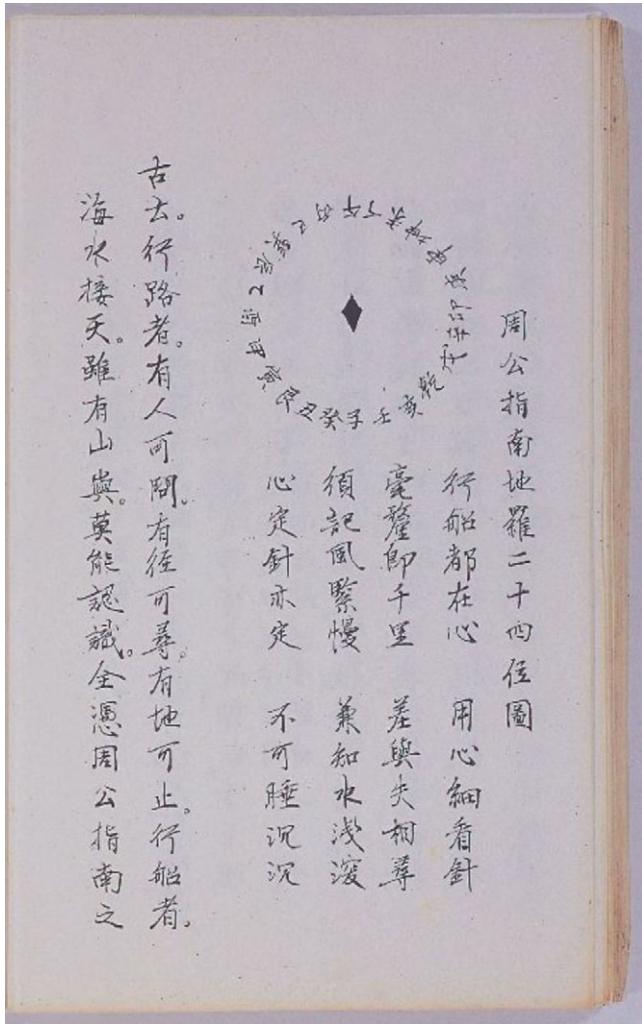 周公指南地羅二十四位圖
子癸丑艮寅甲乙辰巽巳丙午丁未坤申庚辛戌乾亥壬
行船都在心　用心細看針
毫釐即千里　差與失相尋
須記風緊慢　兼知水淺深
心定針亦定　不可睡沉沉
古云。行路者。有人可問。有徑可尋。有地可止。行船者。
海水接天。雖有山嶼。莫能認識。全憑周公指南之